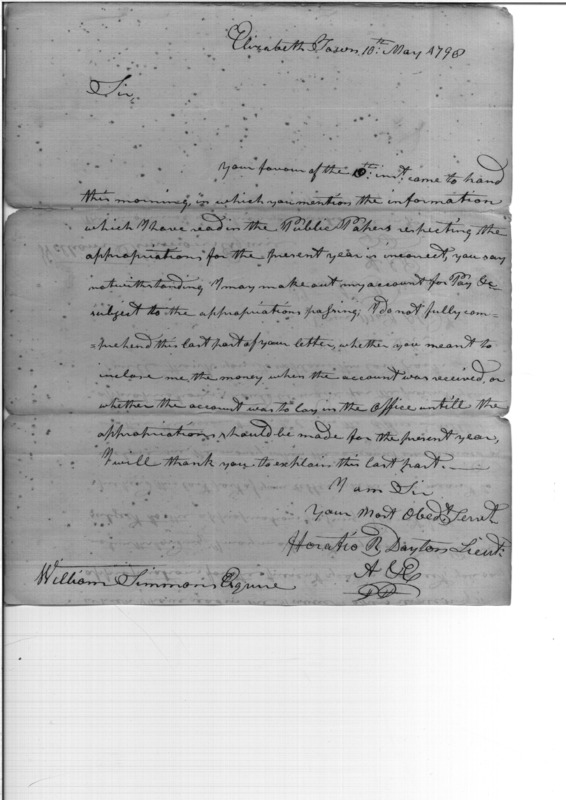 Elizabeth Town 10th May 1798
Sir,
Your favour of the th inst came to hand
this morning, in which you mention the information
which I have read in the Public Papers respecting the
appropriations for the present year is incorrect, you say
notwithstanding I may make out my account for Pay &c
subject to the appropriations passing; I do not fully com-
=prehend this last part of your letter, whether you meant to
inclose me the money when the account was received, or
whether the account was to lay in the Office untill the
appropriations should be made for the present year,
I will thank you to explain this last part.
I am Sir
Your Most Obedt Servt
Horatio R Dayton Lieut
A & E
William Simmons Esquire